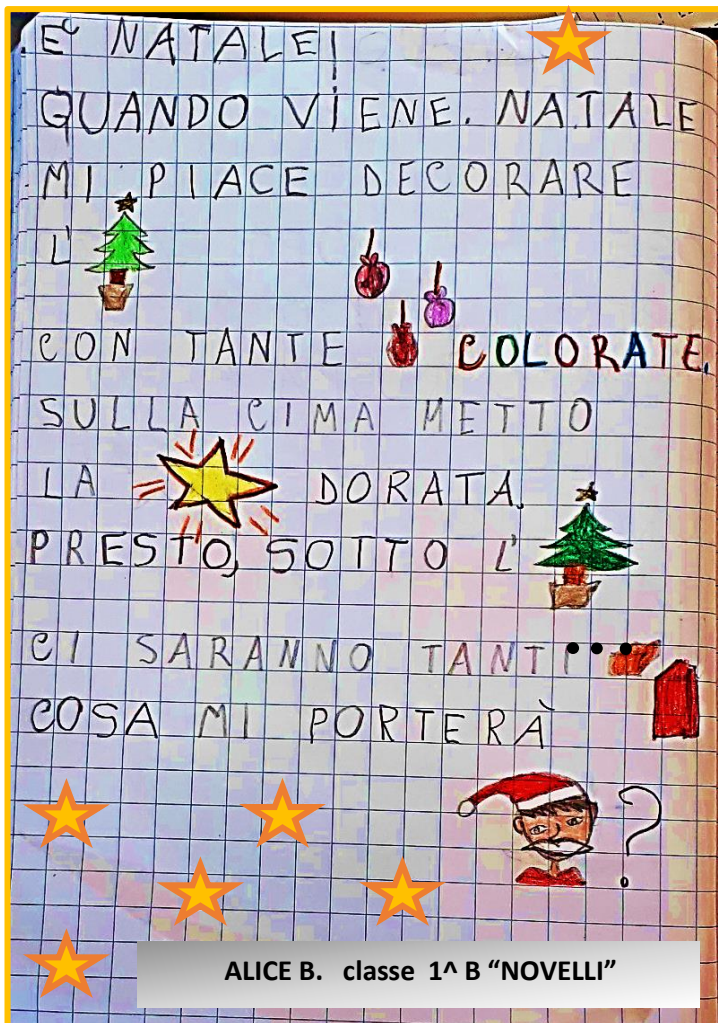 E' NATALE!
QUANDO VIENE. NATALE
MI PIACE DECORARE
L'
CON TANTE COLORATE.
SULLA CIMA METTO
LA DORATA.
PRESTO, SOTTO L'
CI SARANNO TANTI...
COSA MI PORTERÀ
?
ALICE B. classe 1^ B “NOVELLI”